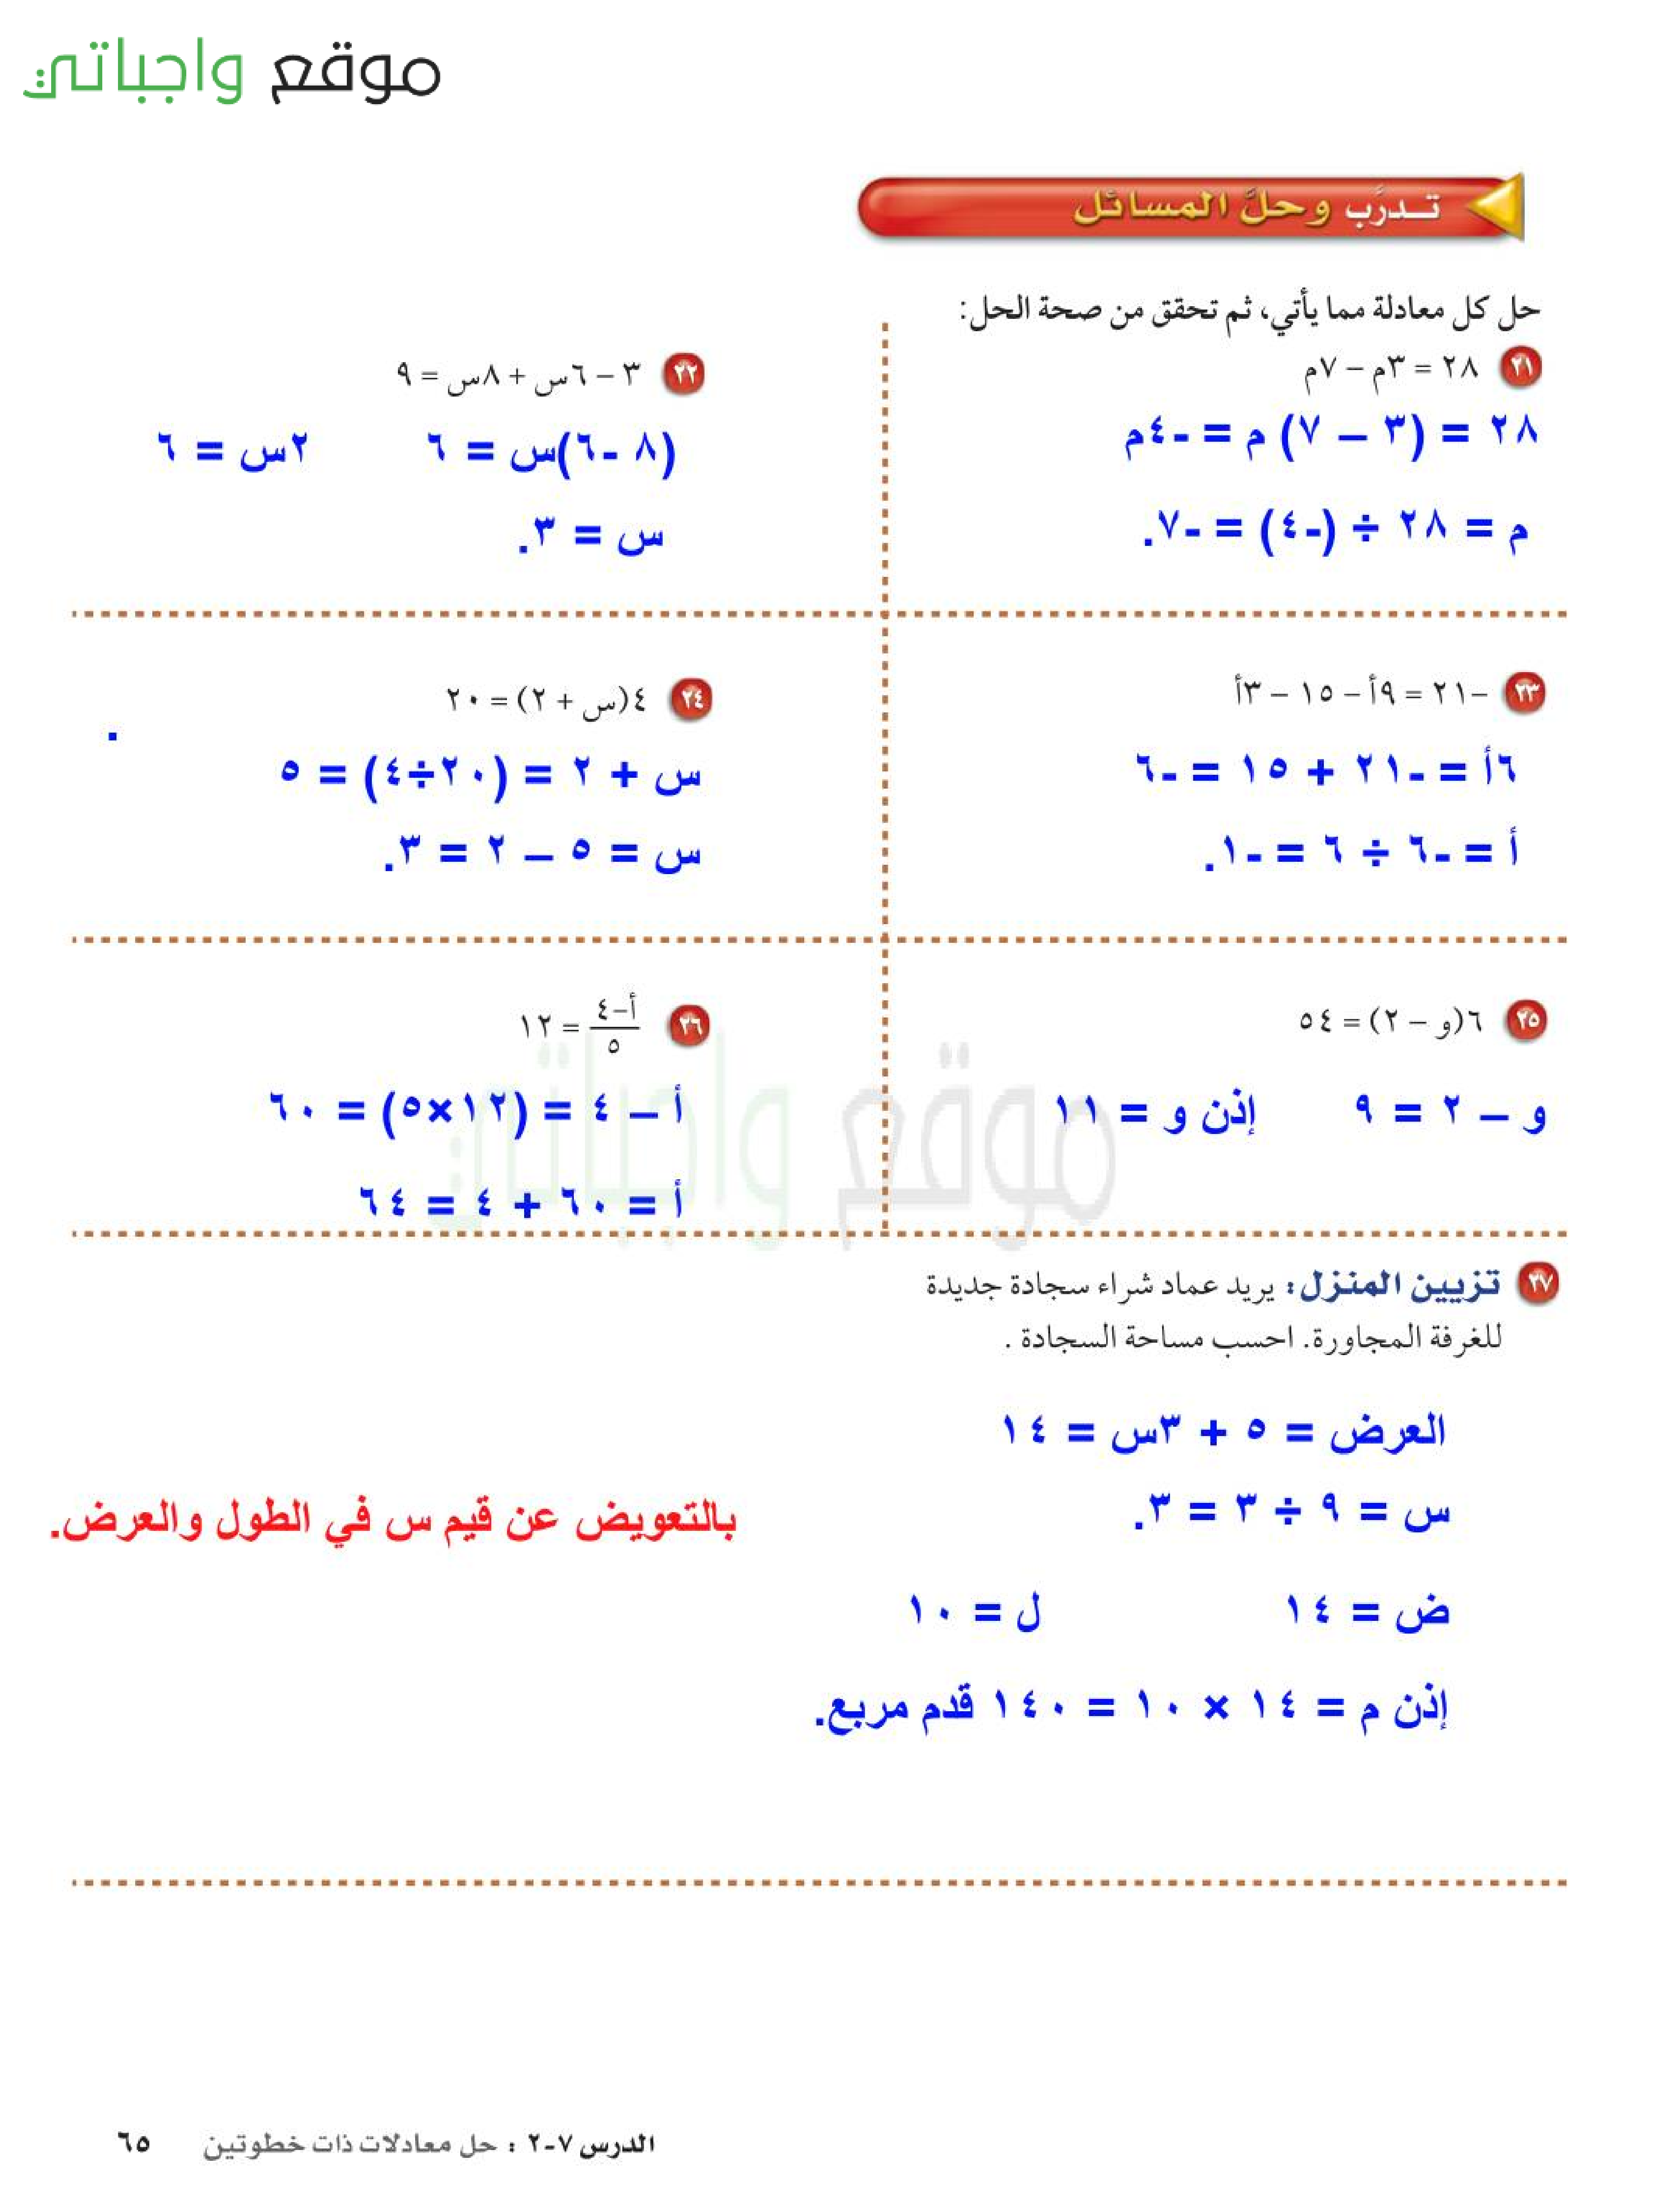 موقع واجباتي
تـدرَّب وحلَّ المسائل
حل كل معادلة مما يأتي، ثم تحقق من صحة الحل:
٢١ ٢٨ = ٣م – ٧م
٢٨ = (٣ – ٧) م = -٤م
م = ٢٨ ÷ (-٤) = -٧.
٢٢ ٣ – ٦س + ٨س = ٩
(٨ -٦)س = ٦ ٢س = ٦
س = ٣.
٢٣ –٢١ = ٩أ – ١٥ – ٣أ
٦أ = -٢١ + ١٥ = -٦
أ = -٦ ÷ ٦ = -١.
٢٤ ٤(س + ٢) = ٢٠
س + ٢ = (٢٠÷٤) = ٥
س = ٥ – ٢ = ٣.
٢٥ ٦(و – ٢) = ٥٤
و – ٢ = ٩ إذن و = ١١
٢٦ أ–٤ / ٥ = ١٢
أ – ٤ = (١٢×٥) = ٦٠
أ = ٦٠ + ٤ = ٦٤
موقع واجباتي
٢٧ تزيين المنزل: يريد عماد شراء سجادة جديدة
للغرفة المجاورة. احسب مساحة السجادة .
العرض = ٥ + ٣س = ١٤
س = ٩ ÷ ٣ = ٣.
بالتعويض عن قيم س في الطول والعرض.
ض = ١٤ ل = ١٠
إذن م = ١٤ × ١٠ = ١٤٠ قدم مربع.
الدرس ٧-٢ : حل معادلات ذات خطوتين ٦٥